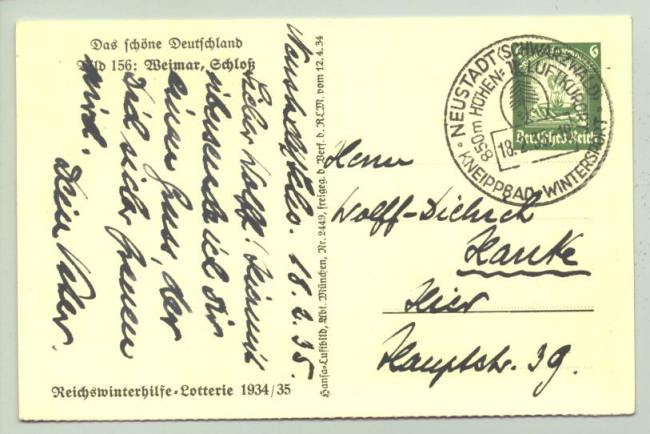 Das schöne Deutschland
Bild 156: Weimar, Schloß
18.2.35.
Lieber Wolff! Hiermit
übersende ich Dir
einen Gruss, der
Dich sicher freuen
wird.
Dein Vater.
Reichswinterhilfe-Lotterie 1934/35
Hansa-Luftbild, Abt. München, Nr. 2449, freigeg. d. Verf. d. RLM. vom 12.4.34
NEUSTADT (SCHWARZWALD)
850m HÖHEN- U. LUFTKURORT
KNEIPPBAD-WINTERSPORT
18.
6
Deutsches Reich
Herrn
Wolff-Dietrich
Hanke
Hier
Hauptstr. 39.